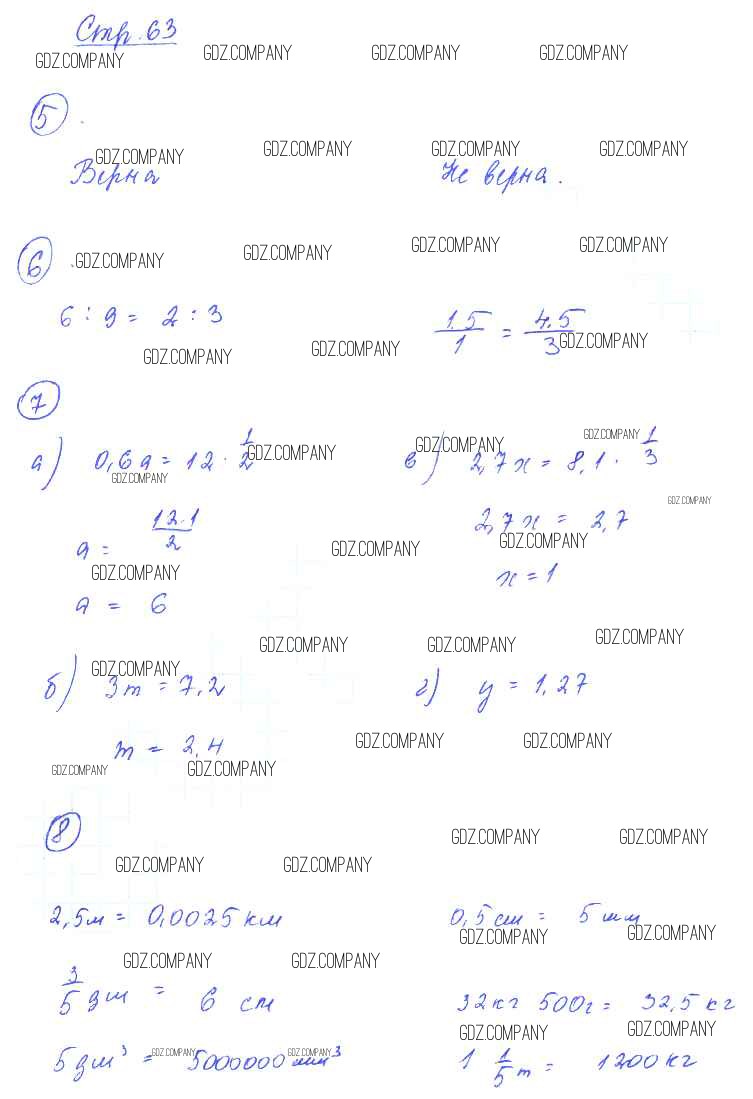 Стр. 63
GDZ.COMPANY GDZ.COMPANY GDZ.COMPANY GDZ.COMPANY
5
GDZ.COMPANY GDZ.COMPANY GDZ.COMPANY GDZ.COMPANY
Верна Не верна.
6 GDZ.COMPANY GDZ.COMPANY GDZ.COMPANY GDZ.COMPANY
6 : 9 = 2 : 3 1.5/1 = 4.5/3
GDZ.COMPANY GDZ.COMPANY GDZ.COMPANY
7
а) 0,6a = 12 · 1/2 в) 2,7x = 8,1 · 1/3
GDZ.COMPANY GDZ.COMPANY GDZ.COMPANY GDZ.COMPANY
GDZ.COMPANY
a = 12·1/2 2,7x = 2,7
GDZ.COMPANY GDZ.COMPANY GDZ.COMPANY
a = 6 x = 1
GDZ.COMPANY GDZ.COMPANY GDZ.COMPANY
GDZ.COMPANY
б) 3m = 7,2 г) y = 1,27
m = 2,4
GDZ.COMPANY GDZ.COMPANY
GDZ.COMPANY GDZ.COMPANY
8
GDZ.COMPANY GDZ.COMPANY
GDZ.COMPANY GDZ.COMPANY
2,5м = 0,0025 км 0,5 см = 5 мм
GDZ.COMPANY GDZ.COMPANY
GDZ.COMPANY GDZ.COMPANY
3/5 дм = 6 см 32 кг 500г = 32,5 кг
GDZ.COMPANY GDZ.COMPANY
5 дм³ = 5000000 мм³ 1 1/5 т = 1200 кг
GDZ.COMPANY GDZ.COMPANY